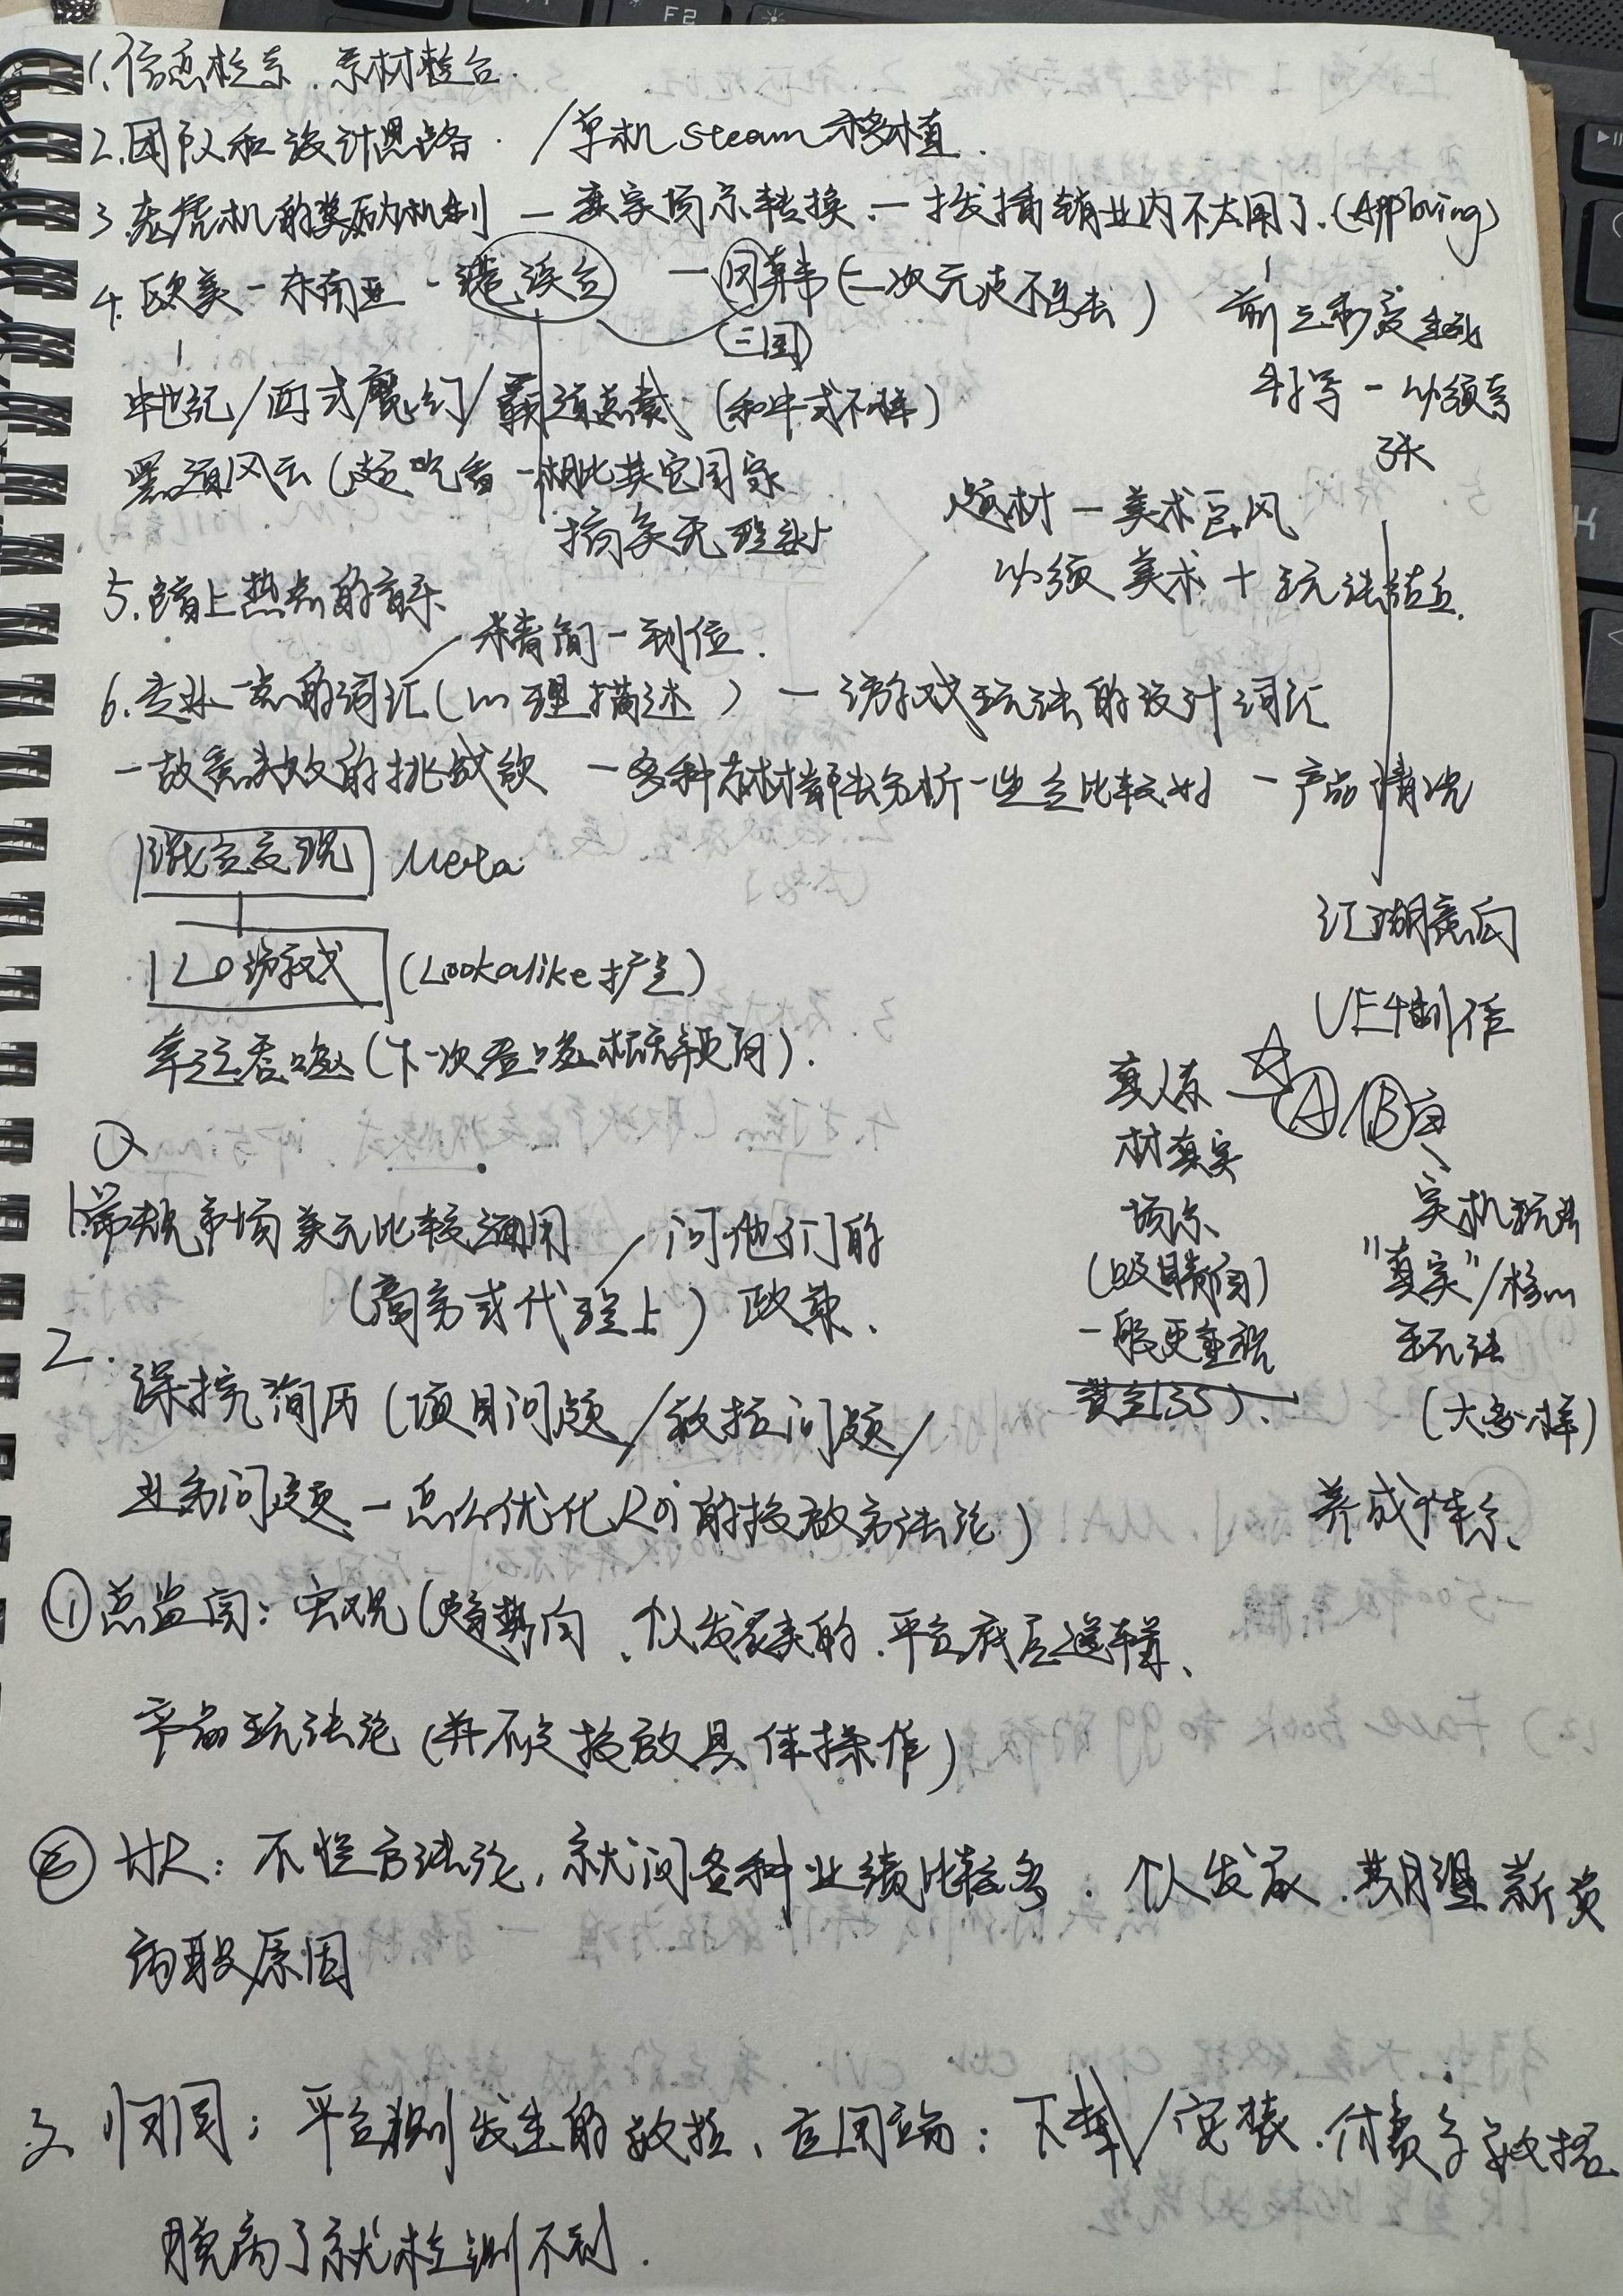 1.信息检索.素材整合.
2.团队和设计思路. /单机steam移植.
3.老虎机的奖励机制 — 卖家场景转换 — 插销业内不太用了.(Apploving)
4.欧美 - 东南亚 - 港澳台 — 日韩(二次元 不去)
三国
前三秒
— 必须夸
张
中世纪/西式魔幻/霸道总裁 (和中式不一样)
黑道风云(超吃香 - 相比其它国家
搞笑无厘头
题材 — 美术画风
必须 美术 + 玩法结合.
5.踏上热点的音乐
精简 - 到位.
6.专业一点的词汇(心理描述) — 游戏玩法的设计词汇
- 故意失败的挑战欲 - 多种素材都去分析 - 比较好 - 产品情况
混合变现 Meta
LO游戏 (Lookalike扩量)
幸运吞噬(下一次吞噬 ).
江湖意向
UE4制作
真人素 — ☆ A/B面
材真实
场景
(吸睛向)
一般更重视
实机玩法
"真实"/核心
玩法
(大多一样)
养成体系.
Q
1.常规市场美元比较通用 / 问他们的
(商务或代理上) 政策.
2.
深挖简历(项目问题/数据问题/
业务问题 - 怎么优化Roi的投放方法论)
①总监向: 宏观(趋势向、个人发展类的.平台底层逻辑、
产品玩法论(并不是投放具体操作)
② HR: 不怪方法论, 就问各种业绩比较多. 个人发展.期望薪资
离职原因
3. 归因: 平台测发生的数据、应用商: 下载/安装.付费等数据
脱离了就检测不到.